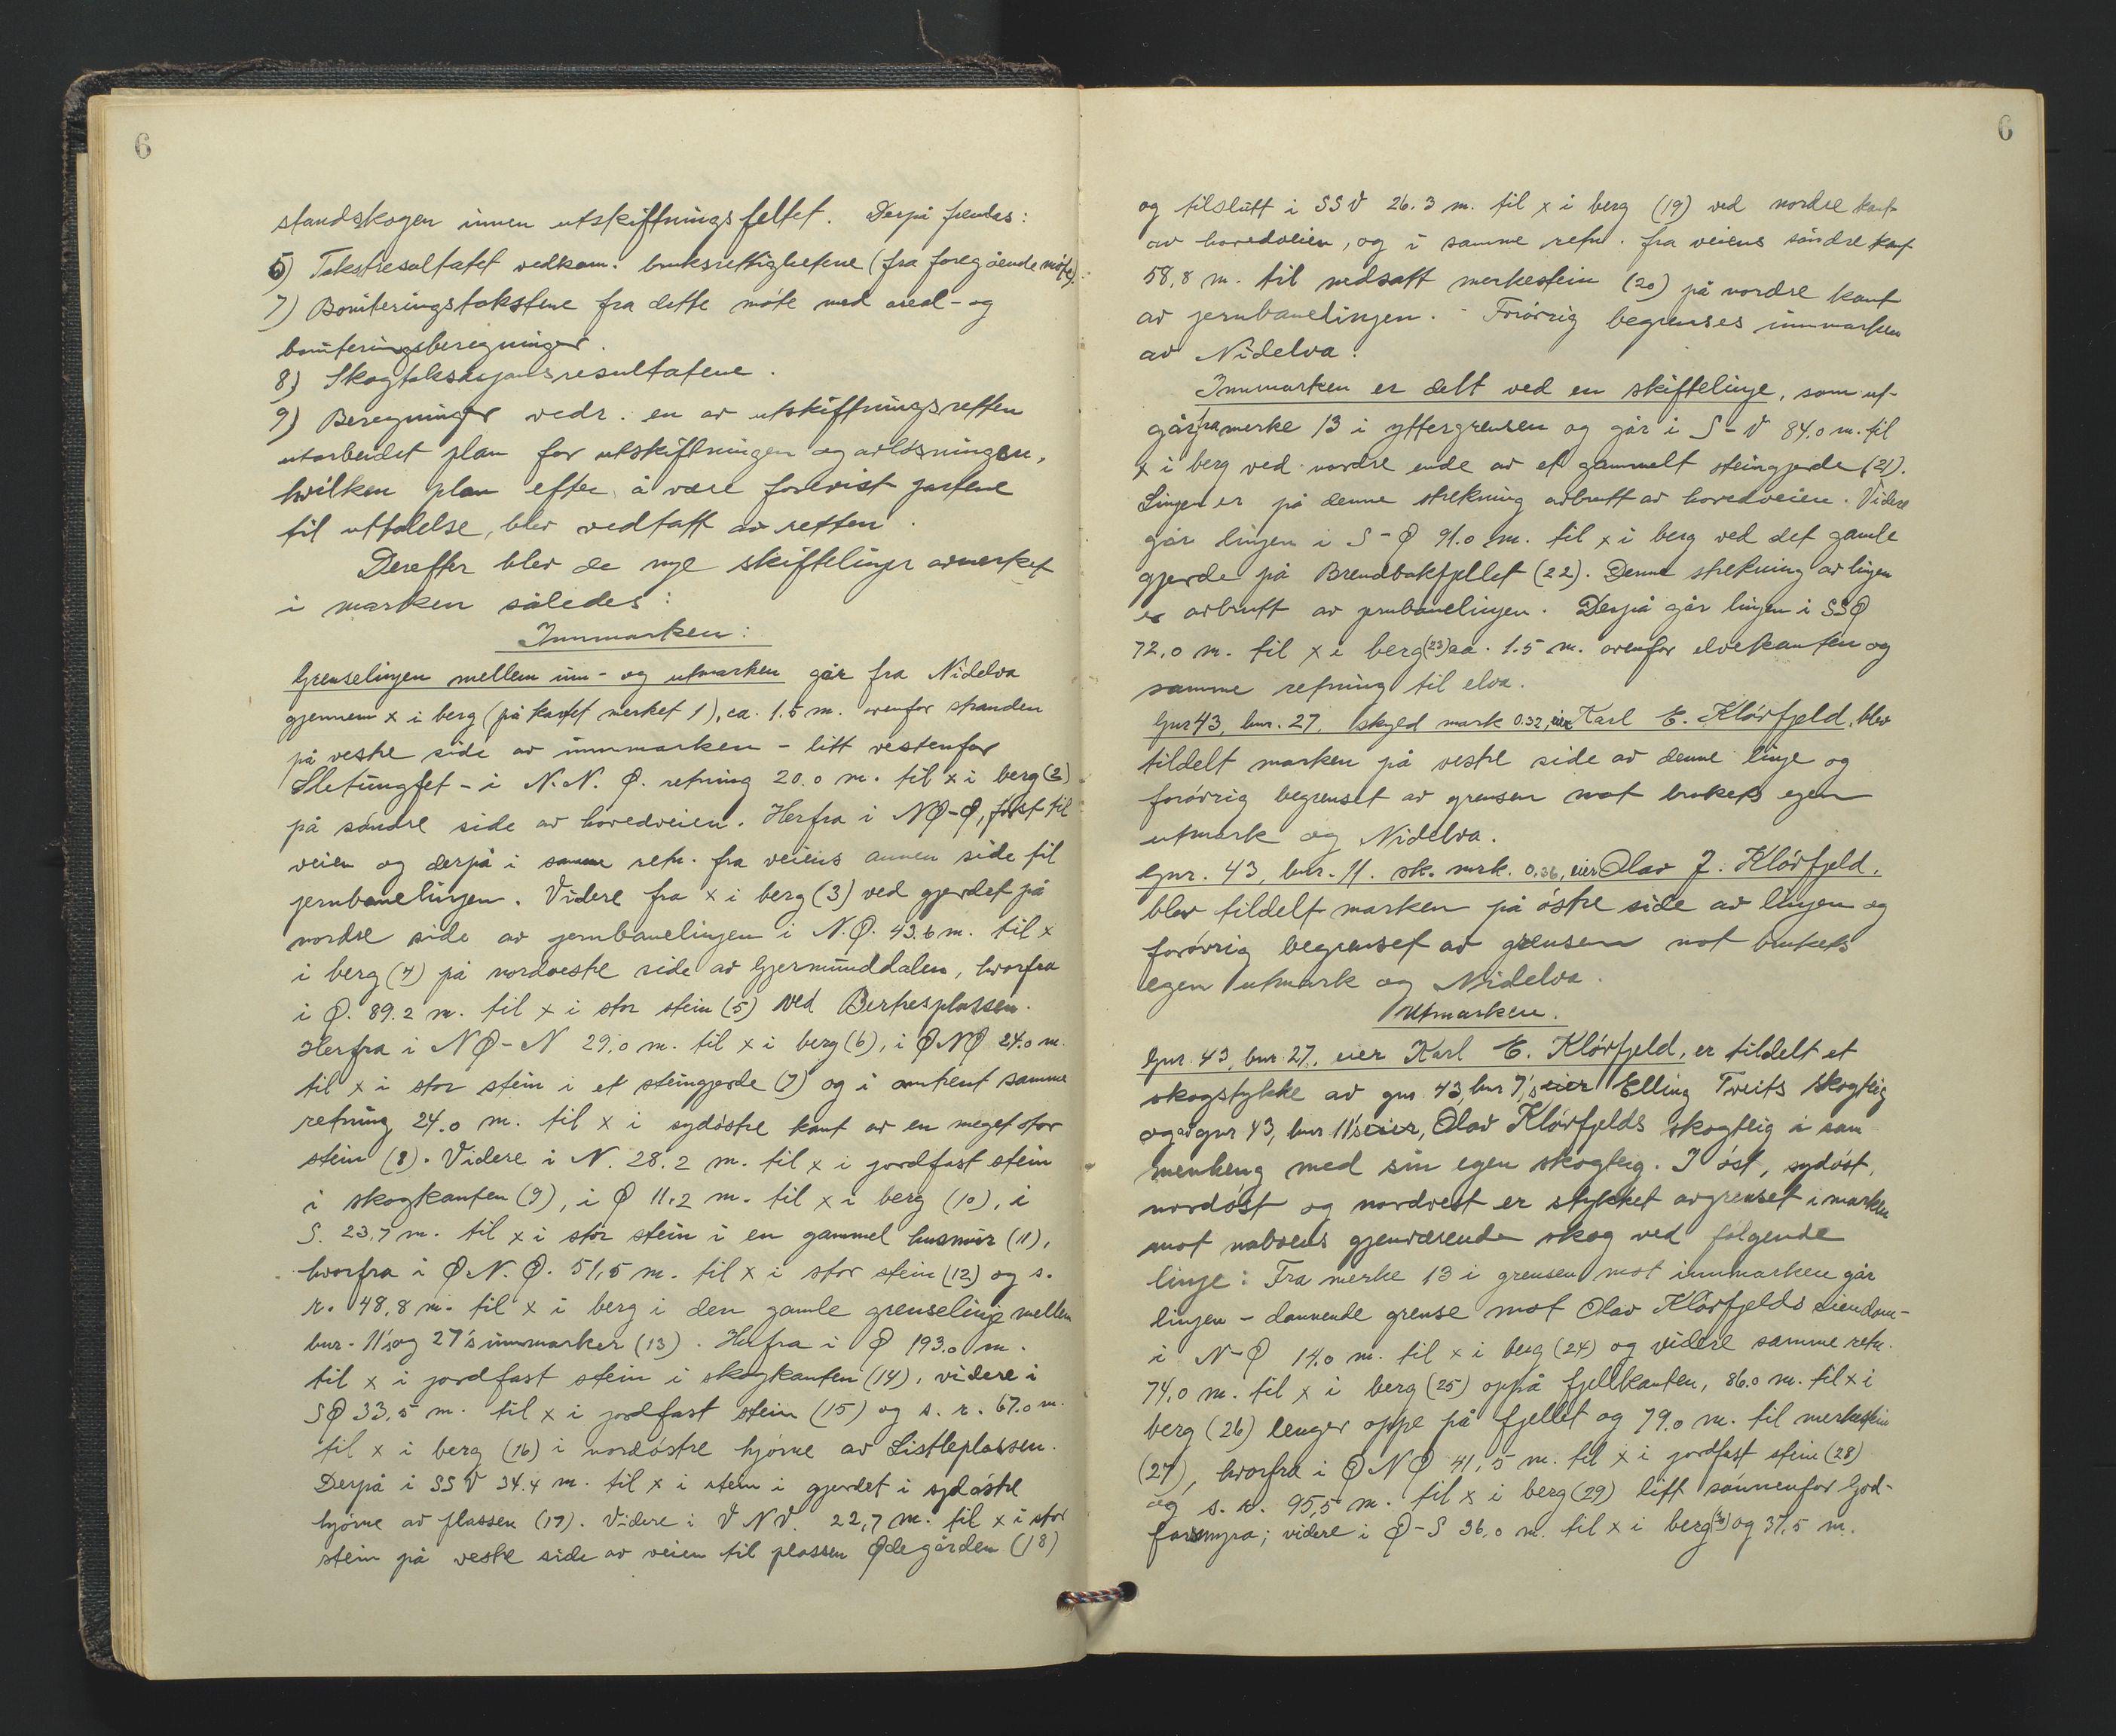 6
standskogen innen utskiftningsfeltet. Derpå
5) Takstresultatet vedkom. bruksrettighetene (fra foregående møte).
7) Boniteringstakstene fra dette møte med areal- og
boniteringsberegninger.
8) Skogtaksasjonsresultatene.
9) Beregninger vedr. en av utskiftningsretten
utarbeidet plan for utskiftningen og avløsningen,
hvilken plan efter å være forevist partene
til uttalelse, blev vedtatt av retten.
Derefter blev de nye skiftelinjer avmerket
i marken således:
Innmarken:
Grenselinjen mellem inn- og utmarken går fra Nidelva
gjennem x i berg (på kartet merket 1), ca. 1.5 m. ovenfor stranden
på vestre side av innmarken - litt vestenfor
- i N.N.Ø. retning 20.0 m. til x i berg (2)
på søndre side av hovedveien. Herfra i NØ-Ø, først til
veien og derpå i samme retn. fra veiens annen side til
jernbanelinjen. Videre fra x i berg (3) ved gjerdet på
nordre side av jernbanelinjen i N.Ø. 43.6 m. til x
i berg (4) på nordvestre side av Gjermunddalen, hvorfra
i Ø. 89.2 m. til x i stor stein (5) ved Berhesplassen.
Herfra i NØ-N 29.0 m. til x i berg (6), i ØNØ 24.0 m.
til x i stor stein i et steingjerde (7) og i omtrent samme
retning 24.0 m. til x i sydøstre kant av en meget stor
stein (8). Videre i N. 28.2 m. til x i jordfast stein
i skogkanten (9), i Ø 11.2 m. til x i berg (10), i
S. 23.7 m. til x i stor stein i en gammel husmur (11),
hvorfra i Ø.N.Ø. 51,5 m. til x i stor stein (12) og s.
r. 48,8 m. til x i berg i den gamle grenselinje mellem
bnr. 11's og 27's innmarker (13). Herfra i Ø 193.0 m.
til x i jordfast stein i skogkanten (14), videre i
SØ 33,5 m. til x i jordfast stein (15) og s. r. 67.0 m.
til x i berg (16) i nordøstre hjørne av Listleplassen.
Derpå i SSV 34.4 m. til x i stein i gjerdet i sydøstre
hjørne av plassen (17). Videre i VNV. 22,7 m. til x i stor
stein på vestre side av veien til plassen Ødegården (18)
6
og tilslutt i SSV 26.3 m. til x i berg (19) ved nordre kant
av hovedveien, og i samme retn. fra veiens søndre kant
58,8 m. til nedsatt merkestein (20) på nordre kant
av jernbanelinjen. - Forøvrig begrenses innmarken
av Nidelva.
Innmarken er delt ved en skiftelinje, som ut-
går fra merke 13 i yttergrensen og går i S-V 84.0 m. til
x i berg ved nordre ende av et gammelt steingjerde (21).
Linjen er på denne strekning avbrutt av hovedveien. Videre
går linjen i S-Ø 91.0 m. til x i berg ved det gamle
gjerde på Brendbakfjellet (22). Denne strekning av linjen
er avbrutt av jernbanelinjen. Derpå går linjen i SSØ
72.0 m. til x i berg (23) ca. 1.5 m. ovenfor elvekanten og
samme retning til elva.
Gnr 43, bnr. 27, skyld mark 0.32, eier Karl E. Kløvfjeld, blev
tildelt marken på vestre side av denne linje og
forøvrig begrenset av grensen mot brukets egen
utmark og Nidelva.
Gnr. 43, bnr. 11. sk. mrk. 0.36, eier Olav J. Kløvfjeld,
blev tildelt marken på østre side av linjen og
forøvrig begrenset av grensen mot brukets
egen utmark og Nidelva.
Utmarken.
Gnr. 43, bnr. 27, eier Karl E. Kløvfjeld, er tildelt et
skogstykke av gnr 43, bnr 7's, eier Elling Tveits skogteig
og av gnr 43, bnr 11's eier, Olav Kløvfjelds skogteig i sam
menheng med sin egen skogteig. I øst, sydøst,
nordøst og nordvest er stykket avgrenset i marken
mot naboens gjenværende skog ved følgende
linje: Fra merke 13 i grensen mot innmarken går
linjen - dannende grense mot Olav Kløvfjelds eiendom -
i N-Ø 14.0 m. til x i berg (24) og videre samme retn.
74,0 m. til x i berg (25) oppå fjellkanten, 86.0 m. til x i
berg (26) lenger oppe på fjellet og 79.0 m. til merkestein
(27), hvorfra i ØNØ 41,5 m. til x i jordfast stein (28)
og s. r. 95,5 m. til x i berg (29) litt sønnenfor God-
farsmyra; videre i Ø-S 36,0 m. til x i berg (30) og 37,5 m.